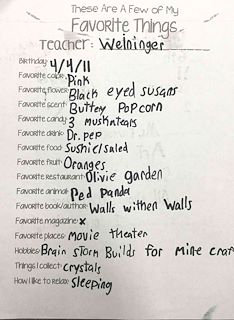 These Are A Few of My
Favorite Things
Teacher: Weininger
Birthday: 4/4/11
Favorite color: Pink
Favorite flower: Black eyed susans
Favorite scent: Buttey Popcorn
Favorite candy: 3 muskatears
Favorite drink: Dr. pep
Favorite food: Sushi/saled
Favorite fruit: Oranges
Favorite restaurant: Olivie garden
Favorite animal: Red Panda
Favorite book/author: Walls withen Walls
Favorite magazine: x
Favorite places: movie theater
Hobbies: Brain storm Builds for mine craf
Things I collect: crystals
How I like to relax: sleeping